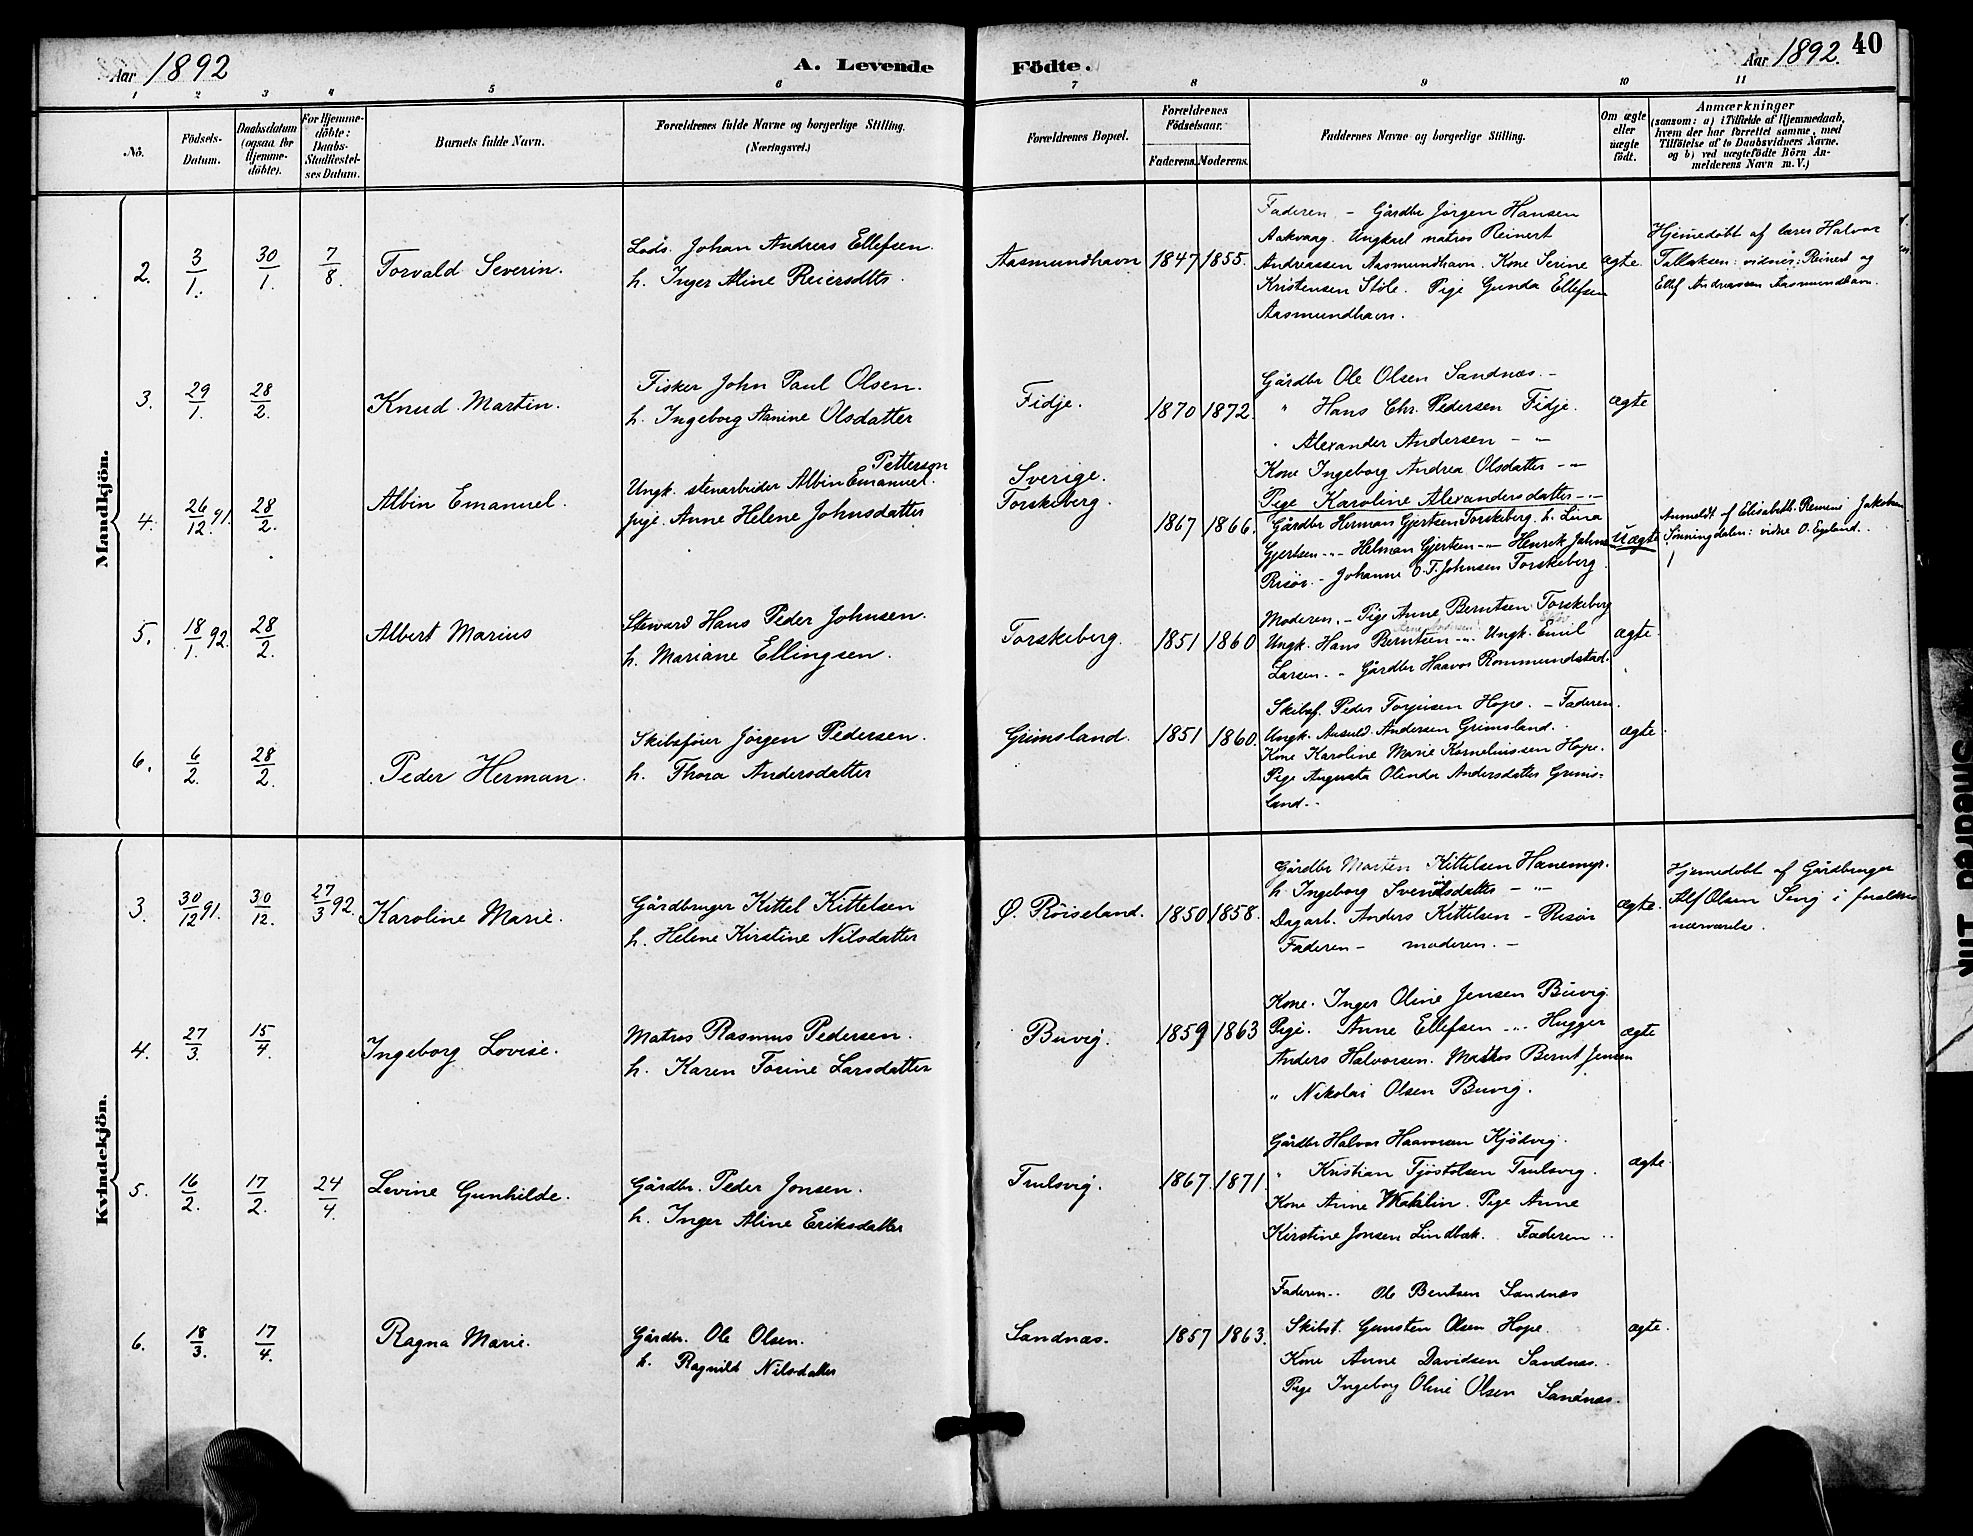 Aar 1892
A. Levende Födte.
Aar 1892. 40
1 2 3 4 5 6 7 8 9 10 11
No.
Födsels-
Datum.
Daabsdatum
(ogsaa for
Hjemme-
döbte).
For Hjemme-
döbte:
Daabs-
Stadfæstel-
ses Datum.
Barnets fulde Navn.
Forældrenes fulde Navne og borgerlige Stilling.
(Næringsvei.)
Forældrenes Bopæl.
Forældrenes
Födselsaar.
Faderens. Moderens.
Faddernes Navne og borgerlige Stilling.
Om ægte
eller
uægte
födt.
Anmærkninger
(saasom: a) i Tilfælde af Hjemmedaab,
hvem der har forrettet samme, med
Tilföielse af to Daabsvidners Navne,
og b) ved uægtefödte Börn An-
melderens Navn m. V.)
Mandkjön.
2. 3/1. 30/1. 7/8. Torvald Severin.
Lods. Johan Andreas Ellefsen.
h. Inger Aline Reiersdtts.
Aasmundhavn 1847 1855.
Faderen. - Gårdbr Jørgen Hansen
Aakvaag. Ungkarl matros Reinert
Andreassen Aasmundhavn. Kone Serine
Kristensen Støle. Pige Gunda Ellefsen
Aasmundhavn.
ægte.
Hjemedøbt af lærer Halvor
Tallaksen: vidner: Reinert og
Ellef Andreassen Aasmundhavn.
3. 29/1. 28/2. Knud Martin.
Fisker John Paul Olsen.
h. Ingeborg Aanine Olsdatter
Fidje. 1870 1872.
Gårdbr Ole Olsen Sandnæs. -
" Hans Chr. Pedersen Fidje.
" Alexander Andersen - "-
Kone Ingeborg Andrea Olsdatter - "-
Pige Karoline Alexandersdatter -"-
ægte
4. 26/12 91. 28/2. Albin Emanuel.
Petterson
Ungk. stenarbeider Albin Emanuel.
pige. Anne Helene Johnsdatter
Sverige.
Torskeberg.
1867 1866.
Gårdbr Herman Gjertsen Torskeberg. h. Lina
Gjertsen -"- Helman Gjertsen -"- Henrik Johns
Risør. - Johanne O. T. Johnsen Torskeberg.
Uægte
Anmeldt af Elisabeth Jakobsen
Sønningdalen: vidne O. Egeland.
5. 18/1 92. 28/2. Albert Marius
Steward Hans Peder Johnsen.
h. Mariane Ellingsen.
Torskeberg. 1851 1860
Moderen. - Pige Anne Berntsen Torskeberg
Ungk. Hans Berntsen -"- Ungk. Emil
Larsen. - Gårdbr Haavor Rommundstad.
ægte
6. 6/2. 28/2. Peder Herman.
Skibsfører Jørgen Pedersen.
h. Thora Andersdatter
Grimsland. 1851 1860.
Skibsf. Peder Torjusen Hope. - Faderen.
Ungk. Aasuld Andersen Grimsland.
Kone Karoline Marie Korneliussen Hope.
Pige Augusta Olinda Andersdatter Grims-
land.
ægte
Kvindekjön.
3. 30/12 91. 30/12. 27/3 92. Karoline Marie.
Gårdbruger Kittel Kittelsen
h. Helene Kirstine Nilsdatter
Ø. Röiseland. 1850 1858.
Gårdbr Morten Kittelsen Hanemyr.
h. Ingeborg Svendsdatter - "-
Dagarb. Anders Kittelsen - Risør
Faderen - moderen. -
ægte.
Hjemedøbt af Gårdbruger
Alf Olsen i forældres
nærværelse.
4. 27/3. 15/4. Ingeborg Lovise.
Matros Rasmus Pedersen.
h. Karen Tosine Larsdatter
Buvig. 1859 1863
Kone. Inger Oline Jensen Buvig.
Pige. Anne Ellefsen -"- Hugger
Anders Halvorsen. Matros Bernt Jensen
" Nikolai Olsen Buvig.
ægte
5. 16/2. 17/2. 24/4. Levine Gunhilde.
Gårdbr. Peder Jonsen.
h. Inger Aline Eriksdatter
Trulsvig. 1867. 1871.
Gårdbr Halvor Haavorsen Kjødvig.
" Kristian Tjøstolsen Trulsvig.
Kone Anne Pige Anne
Kirstine Jonsen Lindbæk. Faderen
ægte
6. 18/3. 17/4. Ragna Marie.
Gårdbr. Ole Olsen.
h. Ragnild Nilsdatter
Sandnæs. 1857 1863.
Faderen.. Ole Bentsen Sandnæs
Skibst. Gunsten Olsen Hope.
Kone Anne Davidsen Sandnæs.
Pige Ingeborg Oline Olsen Sandnæs.
ægte.